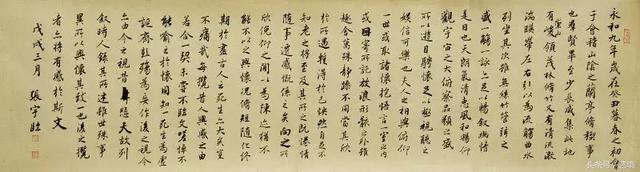 永和九年歲在癸丑暮春之初會
于會稽山陰之蘭亭脩稧事
也羣賢畢至少長咸集此地
有崇山峻領茂林脩竹又有清流激
湍暎帶左右引以為流觴曲水
列坐其次雖無絲竹管弦之
盛一觴一詠亦足以暢敘幽情
是日也天朗氣清惠風和暢仰
觀宇宙之大俯察品類之盛
所以遊目騁懷足以極視聽之
娛信可樂也夫人之相與俯仰
一世或取諸懷抱悟言一室之內
或因寄所託放浪形骸之外雖
趣舍萬殊靜躁不同當其欣
於所遇暫得於己怏然自足不
知老之將至及其所之既惓情
隨事遷感慨係之矣向之所
欣俛仰之間以為陳迹猶不
能不以之興懷況脩短隨化終
期於盡古人云死生亦大矣豈
不痛哉每攬昔人興感之由
若合一契未嘗不臨文嗟悼不
能喻之於懷固知一死生為虛
誕齊彭殤為妄作後之視今
亦由今之視昔悲夫故列
敘時人錄其所述雖世殊事
異所以興懷其致一也後之攬
者亦將有感於斯文
戊戌三月 張宇
头条号